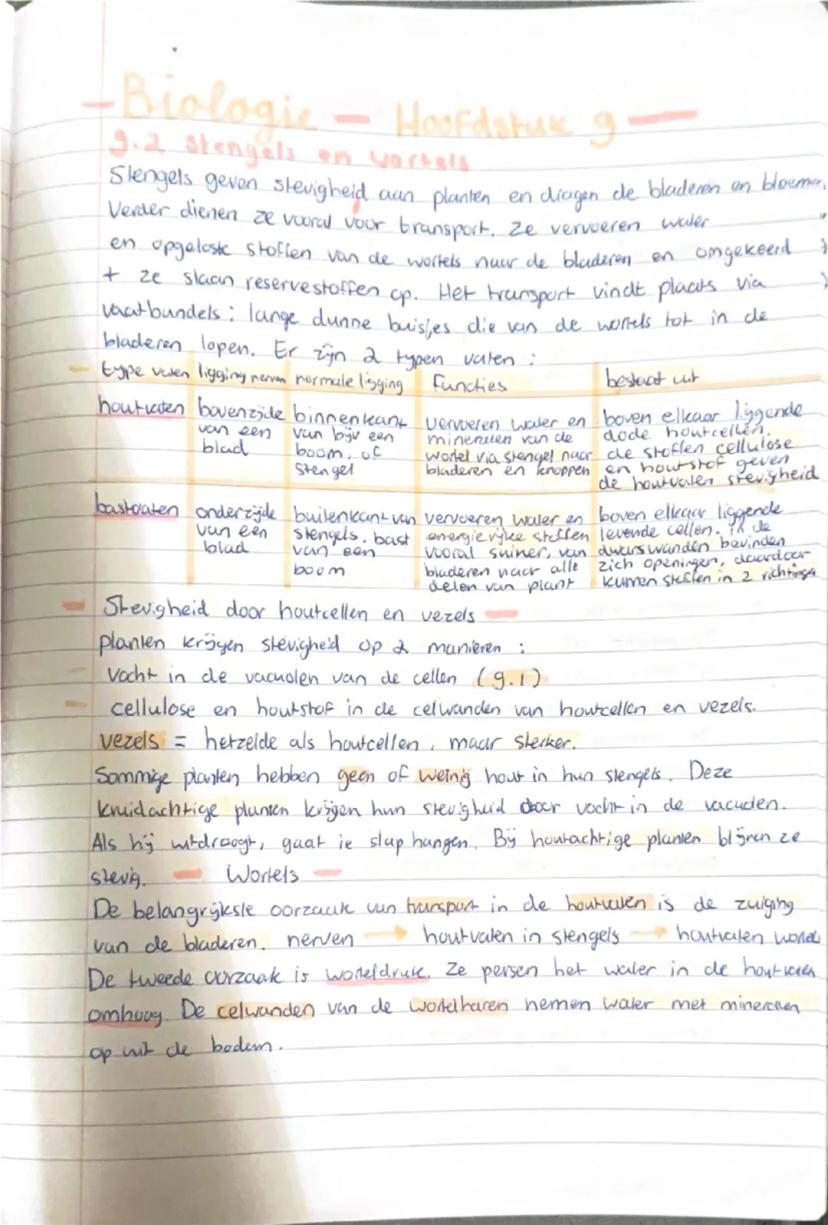 - Biologie - Hoofdstuk 9 -
9.2 stengels en wortels
Stengels geven stevigheid aan planten en dragen de bladeren en bloemen.
Verder dienen ze vooral voor transport. Ze vervoeren water
en opgeloste stoffen van de wortels naar de bladeren en omgekeerd
+ ze slaan reservestoffen op. Het transport vindt plaats via
vaatbundels: lange dunne buisjes die van de wortels tot in de
bladeren lopen. Er zijn 2 typen vaten:
- type vaten ligging nerven normale ligging Functies bestaat uit
houtvaten bovenzijde van een blad binnenkant van bijv een boom, of stengel vervoeren water en mineralen van de wortel via stengel naar bladeren en knoppen boven elkaar liggende dode houtcellen. de stoffen cellulose en houtstof geven de houtvaten stevigheid
bastvaten onderzijde van een blad buitenkant van stengels. bast van een boom vervoeren water en energierijke stoffen vooral suiker, van bladeren naar alle delen van plant boven elkaar liggende levende cellen. in de dwarswanden bevinden zich openingen, daardoor kunnen stoffen in 2 richtingen
- Stevigheid door houtcellen en vezels -
planten krijgen stevigheid op 2 manieren:
- Vocht in de vacuolen van de cellen (9.1)
- cellulose en houtstof in de celwanden van houtcellen en vezels.
vezels = hetzelde als houtcellen, maar sterker.
Sommige planten hebben geen of weinig hout in hun stengels. Deze
kruidachtige planten krijgen hun stevigheid door vocht in de vacuolen.
Als hij uitdroogt, gaat ie slap hangen. Bij houtachtige planten blijven ze
stevig. - Wortels -
De belangrijkste oorzaak van transport in de houtvaten is de zuiging
van de bladeren. nerven → houtvaten in stengels → houtvaten wortel
De tweede oorzaak is worteldruk. Ze persen het water in de houtvaten
omhoog. De celwanden van de wortelharen nemen water met mineralen
op uit de bodem.